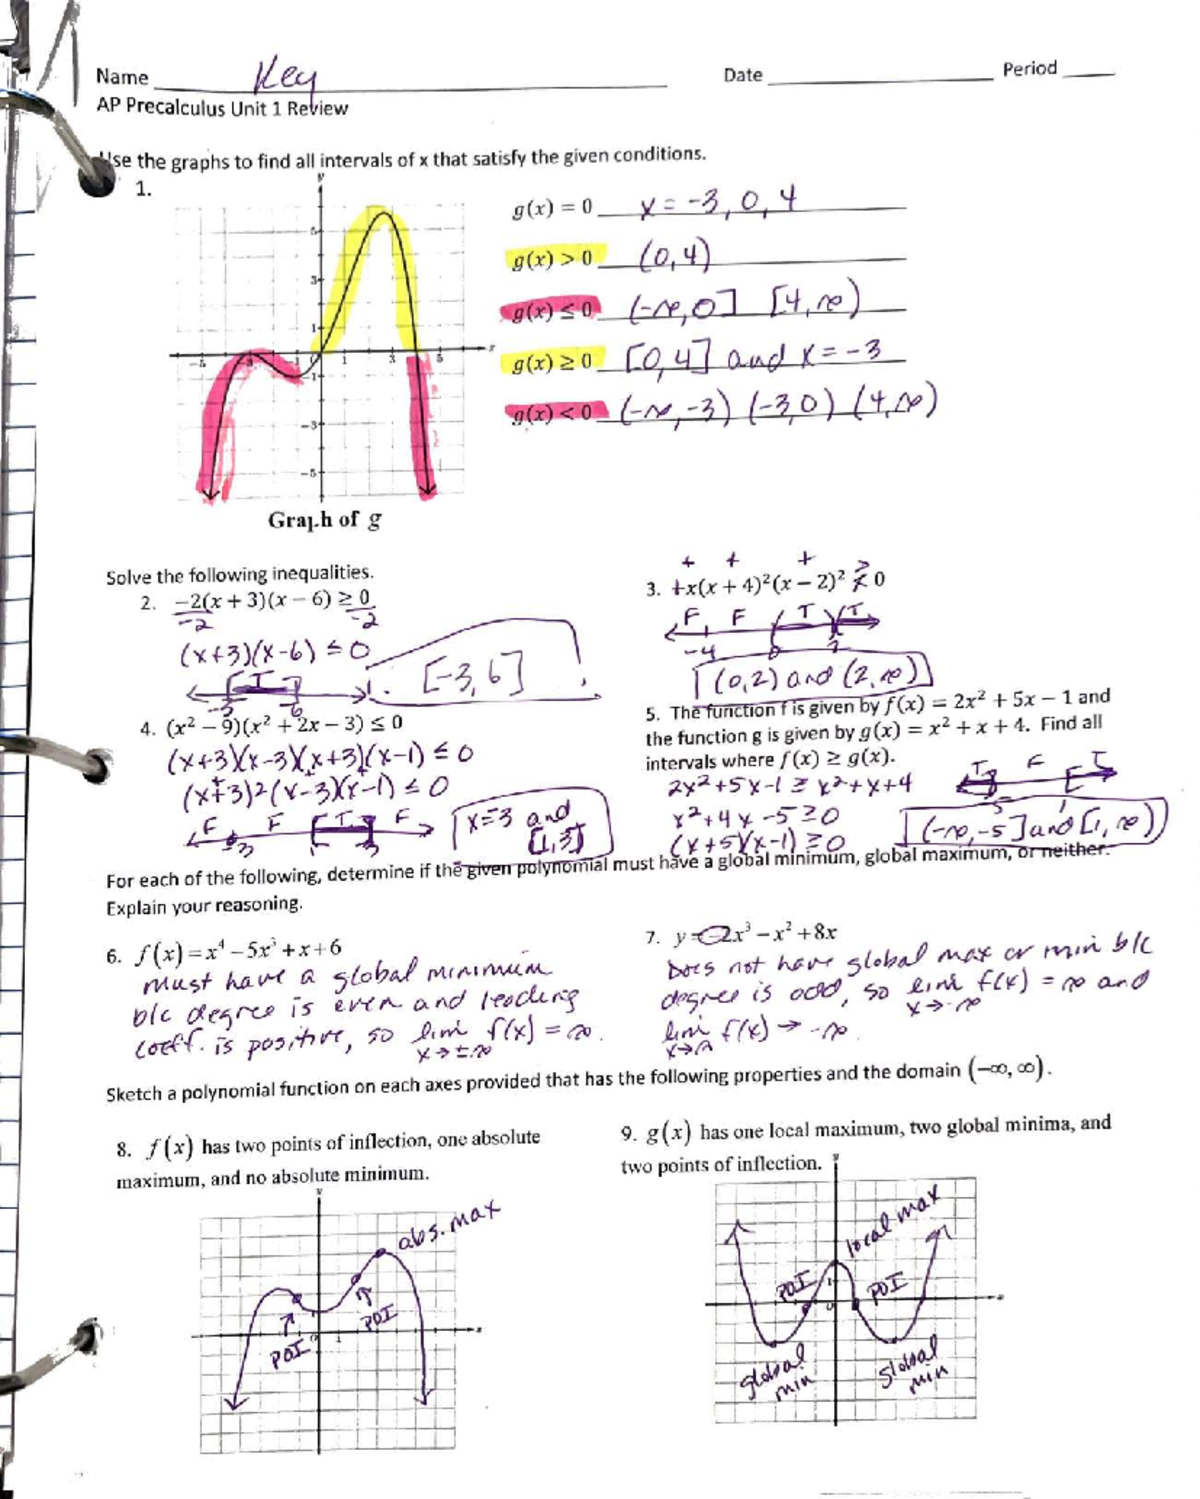 Name Key Date Period
AP Precalculus Unit 1 Review
Use the graphs to find all intervals of x that satisfy the given conditions.
1.
g(x) = 0 x = -3, 0, 4
g(x) > 0 (0,4)
g(x) ≤ 0 (-∞,0] [4,∞)
g(x) ≥ 0 [0,4] and x = -3
g(x) < 0 (-∞,-3) (-3,0) (4,∞)
Graph of g
Solve the following inequalities.
2. -2(x + 3)(x - 6) ≥ 0
-2 -2
(x+3)(x-6) ≤ 0
[-3,6]
T
-3 6
+ + +
3. +x(x + 4)²(x - 2)² > 0
F F T T
-4 0 2
(0,2) and (2,∞)
4. (x² - 9)(x² + 2x - 3) ≤ 0
(x+3)(x-3)(x+3)(x-1) ≤ 0
(x+3)²(x-3)(x-1) ≤ 0
F F T F
-3 1 3
x=-3 and
[1,3]
5. The function f is given by f(x) = 2x² + 5x - 1 and
the function g is given by g(x) = x² + x + 4. Find all
intervals where f(x) ≥ g(x).
2x²+5x-1 ≥ x²+x+4
x²+4x-5 ≥ 0
(x+5)(x-1) ≥ 0
T F T
-5 1
(-∞,-5] and [1,∞)
For each of the following, determine if the given polynomial must have a global minimum, global maximum, or neither.
Explain your reasoning.
6. f(x) = x⁴ - 5x³ + x + 6
must have a global minimum
b/c degree is even and leading
coeff. is positive, so lim f(x) = ∞.
x→±∞
7. y = -2x³ - x² + 8x
Does not have global max or min b/c
degree is odd, so lim f(x) = ∞ and
x→-∞
lim f(x) → -∞.
x→∞
Sketch a polynomial function on each axes provided that has the following properties and the domain (-∞, ∞).
8. f(x) has two points of inflection, one absolute
maximum, and no absolute minimum.
abs. max
POI
POI
9. g(x) has one local maximum, two global minima, and
two points of inflection.
local max
POI
POI
global
min
global
min